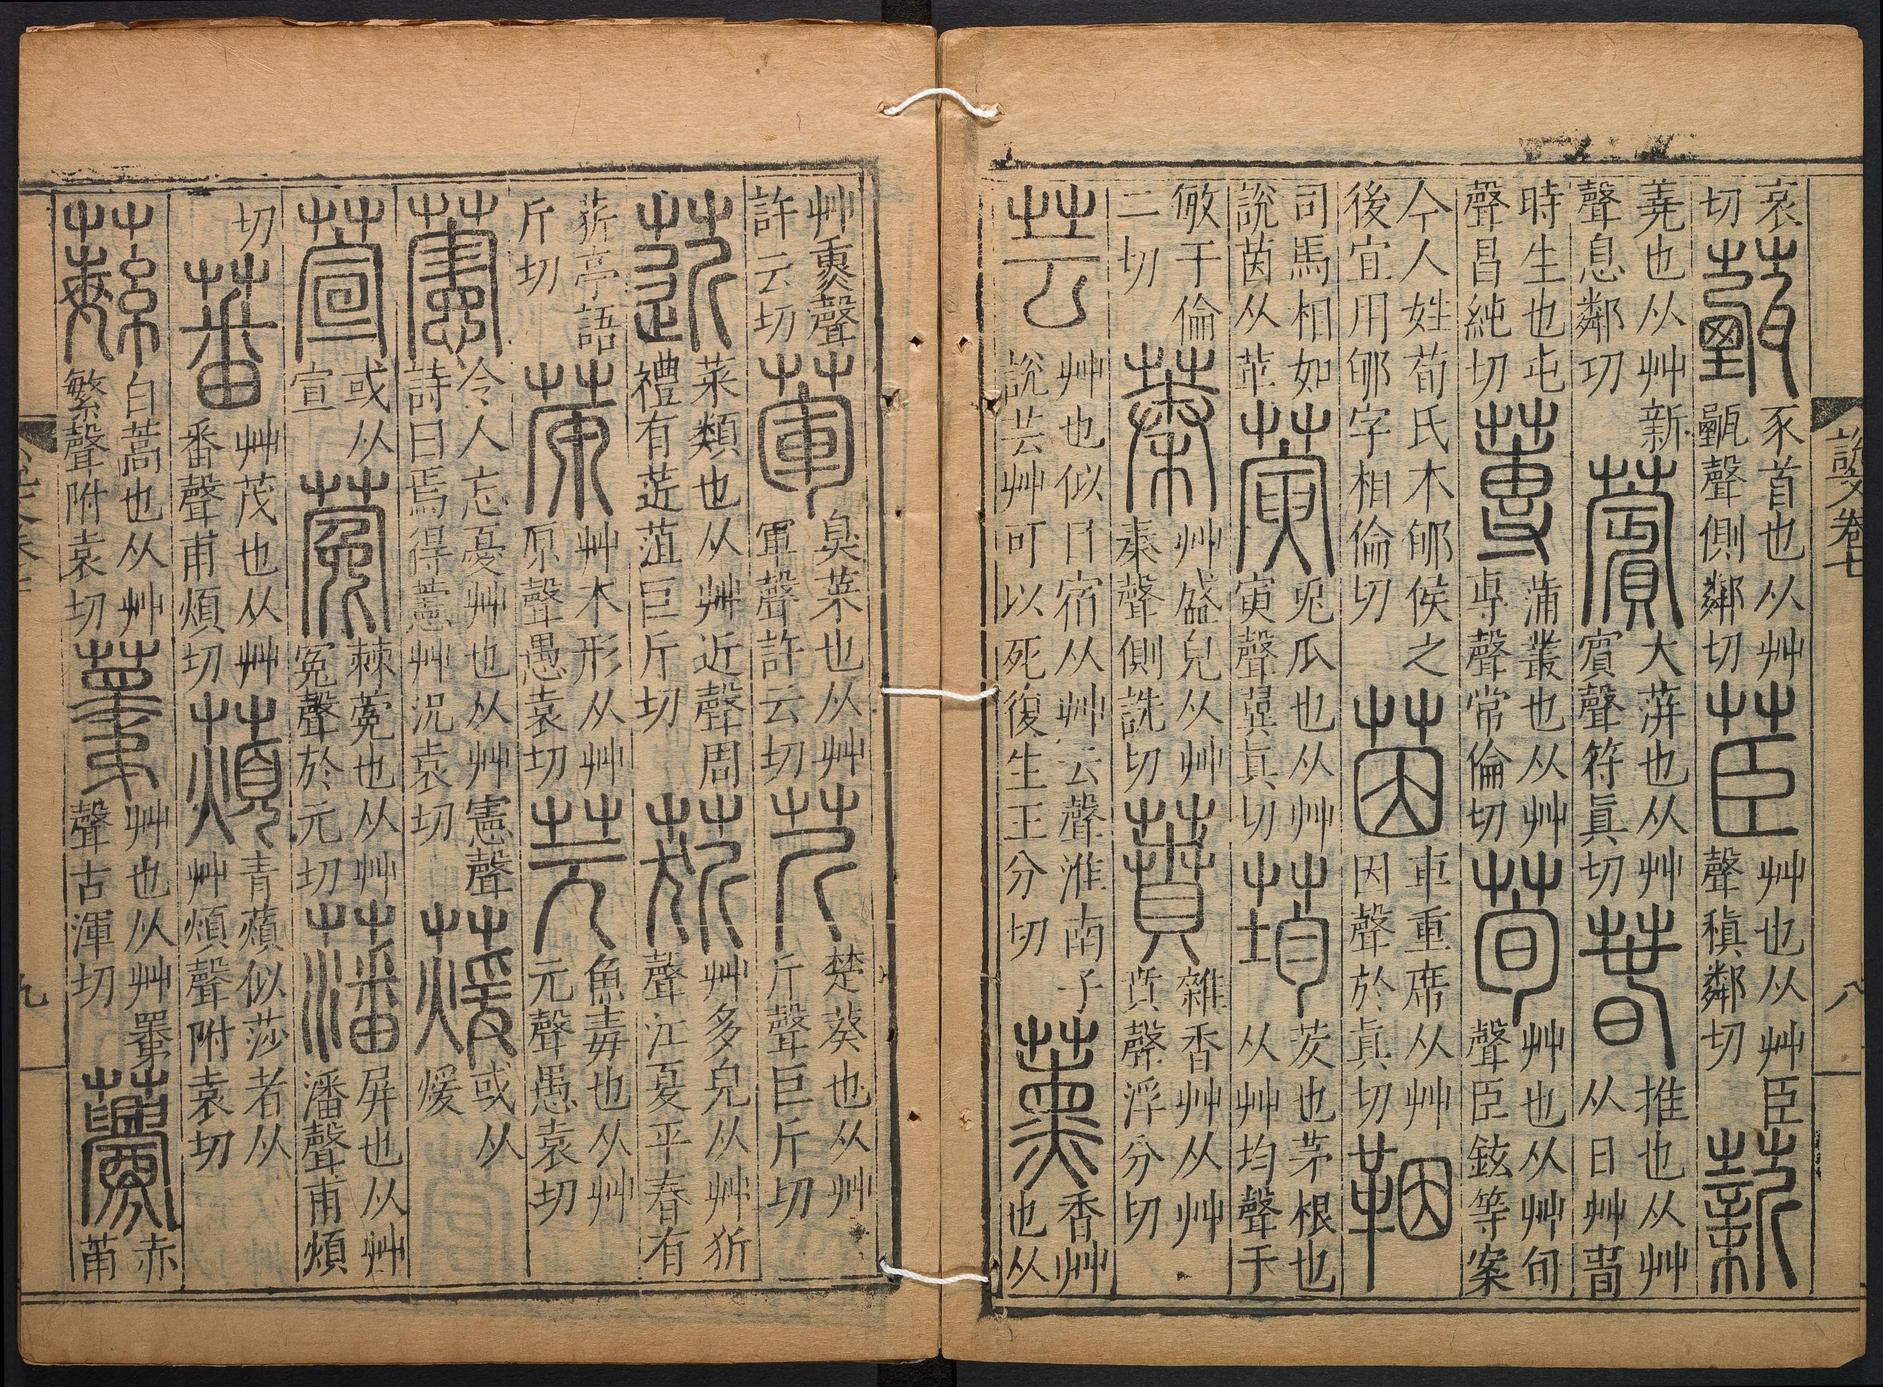 切
薽
豕首也从艸
甄聲側鄰切
茞
艸也从艸臣
聲稹鄰切
薪
蕘也从艸新
聲息鄰切
薲
大蓱也从艸
賓聲符眞切
萅
推也从艸
从日艸春
時生也屯
聲昌純切
蓴
蒲叢也从艸
專聲常倫切
荀
艸也从艸旬
聲臣鉉等案
今人姓荀氏木郇侯之
後宜用郇字相倫切
茵
車重席从艸
因聲於眞切
鞇
司馬相如
說茵从革
兎瓜也从艸
寅聲翼眞切
荺
茇也茅根也
从艸均聲于
敏于倫
二切
蓁
艸盛皃从艸
秦聲側詵切
蕡
雜香艸从艸
賁聲浮分切
芸
艸也似目宿从艸云聲淮南子
說芸艸可以死復生王分切
薰
香艸
也从
說文卷七
八
艸熏聲
許云切
葷
臭菜也从艸
軍聲許云切
芹
楚葵也从艸
斤聲巨斤切
菦
菜類也从艸近聲周
禮有菦菹巨斤切
艸多皃从艸
聲江夏平春有
亭語
斤切
蒝
艸木形从艸
原聲愚袁切
芫
魚毒也从艸
元聲愚袁切
藼
令人忘憂艸也从艸憲聲
詩曰焉得藼艸況袁切
蕿
或从
煖
萱
或从
宣
蒬
棘蒬也从艸
冤聲於元切
藩
屏也从艸
潘聲甫煩
切
蕃
艸茂也从艸
番聲甫煩切
薠
青薠似莎者从
艸煩聲附袁切
蘩
白蒿也从艸
繁聲附袁切
艸也从艸
聲古渾切
虋
赤
九